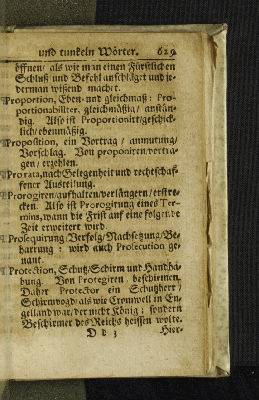 und tunkeln Wörter. 629
öffnen/ als wie man einen Fürstlichen
Schluß und Befehl anschläget und je-
derman wißend machet.
Proportion, Eben- und gleichmaß: Pro-
portionabiliter, gleichmäßig/ anstän-
dig. Also ist Proportionirt/geschick-
lich/ebenmäßig.
Proposition, ein Vortrag/ anmutung/
Vorschlag. Von proponiren/vortra-
gen/ erzehlen.
Pro rata, nach Gelegenheit und rechtschaf-
fener Austeilung.
Prorogiren/aufhalten/verlängern/erstre-
cken. Also ist Prorogirung eines Ter-
mins, wann die Frist auf eine folgende
Zeit erweitert wird.
Prosequirung/Verfolg/Nachsetzung/Be-
harrung: wird auch Prosecution ge-
nant.
Protection, Schutz/Schirm und Handha-
bung. Von Protegiren, beschirmen.
Daher Protector ein Schutzherr/
Schirmvogd/als wie Cromwell in En-
gelland war/der nicht König; sondern
Beschirmer des Reichs heissen wolte.
D d 3 Hier-